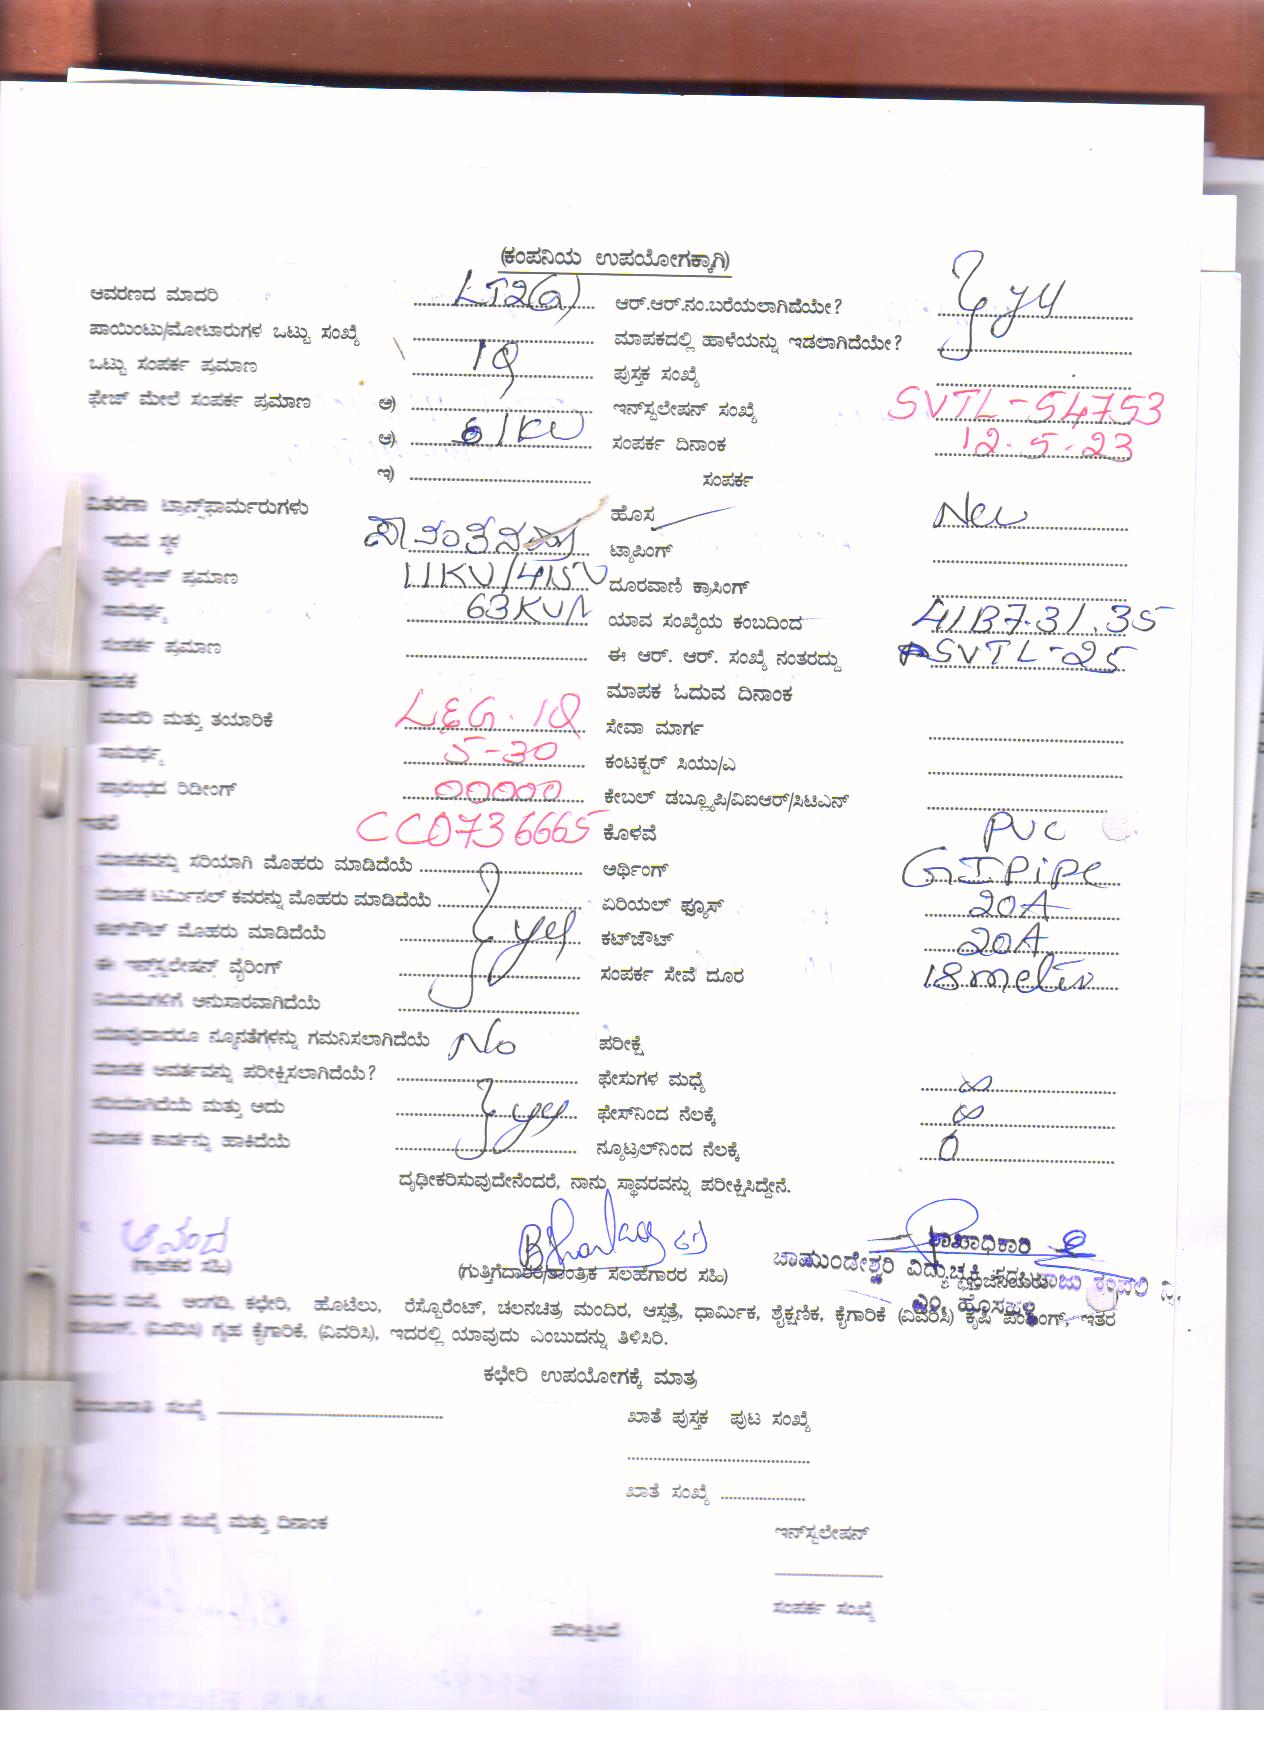 (ಕಂಪನಿಯ ಉಪಯೋಗಕ್ಕಾಗಿ)
ಆವರಣದ ಮಾದರಿ LT2(a) ಆರ್.ಆರ್.ನಂ.ಬರೆಯಲಾಗಿದೆಯೇ? yes
ಪಾಯಿಂಟು/ಮೋಟಾರುಗಳ ಒಟ್ಟು ಸಂಖ್ಯೆ ಮಾಪಕದಲ್ಲಿ ಹಾಳೆಯನ್ನು ಇಡಲಾಗಿದೆಯೇ?
ಒಟ್ಟು ಸಂಪರ್ಕ ಪ್ರಮಾಣ ಪುಸ್ತಕ ಸಂಖ್ಯೆ
ಫೇಜ್ ಮೇಲೆ ಸಂಪರ್ಕ ಪ್ರಮಾಣ ಅ) ಇನ್‌ಸ್ಟಲೇಷನ್ ಸಂಖ್ಯೆ SVTL-54753
ಆ) 1KW ಸಂಪರ್ಕ ದಿನಾಂಕ 12-5-23
ಇ) ಸಂಪರ್ಕ
ವಿತರಣಾ ಟ್ರಾನ್ಸ್‌ಫಾರ್ಮರುಗಳು ಹೊಸ New
ಇರುವ ಸ್ಥಳ ಟ್ಯಾಪಿಂಗ್
ವೋಲ್ಟೇಜ್ ಪ್ರಮಾಣ 11KV/415V ದೂರವಾಣಿ ಕ್ರಾಸಿಂಗ್
ಸಾಮರ್ಥ್ಯ 63KVA ಯಾವ ಸಂಖ್ಯೆಯ ಕಂಬದಿಂದ
ಸಂಪರ್ಕ ಪ್ರಮಾಣ ಈ ಆರ್. ಆರ್. ಸಂಖ್ಯೆ ನಂತರದ್ದು SVTL-25
ಮಾಪಕ ಮಾಪಕ ಓದುವ ದಿನಾಂಕ
ಮಾದರಿ ಮತ್ತು ತಯಾರಿಕೆ L&G. 1Φ ಸೇವಾ ಮಾರ್ಗ
ಸಾಮರ್ಥ್ಯ 5-30 ಕಂಟಕ್ಟರ್ ಸಿಯು/ಎ
ಪ್ರಾರಂಭದ ರಿಡೀಂಗ್ 00000 ಕೇಬಲ್ ಡಬ್ಲ್ಯೂಪಿ/ವಿಐಆರ್/ಸಿಟಿಎನ್
ಇತರೆ CC0736665 ಕೊಳವೆ PVC
ಮಾಪಕವನ್ನು ಸರಿಯಾಗಿ ಮೊಹರು ಮಾಡಿದೆಯೆ ಅರ್ಥಿಂಗ್ GI Pipe
ಮಾಪಕ ಟರ್ಮಿನಲ್ ಕವರನ್ನು ಮೊಹರು ಮಾಡಿದೆಯೆ ಏರಿಯಲ್ ಫ್ಯೂಸ್ 20A
ಕಟ್‌ಔಟ್ ಮೊಹರು ಮಾಡಿದೆಯೆ yes ಕಟ್‌ಔಟ್ 20A
ಈ ಇನ್‌ಸ್ಟಲೇಷನ್ ವೈರಿಂಗ್ ಸಂಪರ್ಕ ಸೇವೆ ದೂರ 18
ನಿಯಮಗಳಿಗೆ ಅನುಸಾರವಾಗಿದೆಯೆ
ಯಾವುದಾದರೂ ನ್ಯೂನತೆಗಳನ್ನು ಗಮನಿಸಲಾಗಿದೆಯೆ No ಪರೀಕ್ಷೆ
ಮಾಪಕ ಆವರ್ತವನ್ನು ಪರೀಕ್ಷಿಸಲಾಗಿದೆಯೆ? ಫೇಸುಗಳ ಮಧ್ಯೆ ∞
ಸರಿಯಾಗಿದೆಯೆ ಮತ್ತು ಅದು yes ಫೇಸ್‌ನಿಂದ ನೆಲಕ್ಕೆ ∞
ಮಾಪಕ ಕಾರ್ಡನ್ನು ಹಾಕಿದೆಯೆ ನ್ಯೂಟ್ರಲ್‌ನಿಂದ ನೆಲಕ್ಕೆ 0
ದೃಢೀಕರಿಸುವುದೇನೆಂದರೆ, ನಾನು ಸ್ಥಾವರವನ್ನು ಪರೀಕ್ಷಿಸಿದ್ದೇನೆ.
ಆನಂದ ಶಾಖಾಧಿಕಾರಿ
(ಗ್ರಾಹಕರ ಸಹಿ) (ಗುತ್ತಿಗೆದಾರರ/ತಾಂತ್ರಿಕ ಸಲಹೆಗಾರರ ಸಹಿ) ಚಾಮುಂಡೇಶ್ವರಿ ವಿದ್ಯುಚ್ಛಕ್ತಿ
ಅಂಗಡಿ, ಕಛೇರಿ, ಹೊಟೆಲು, ರೆಸ್ಟೊರೆಂಟ್, ಚಲನಚಿತ್ರ ಮಂದಿರ, ಆಸ್ಪತ್ರೆ, ಧಾರ್ಮಿಕ, ಶೈಕ್ಷಣಿಕ, ಕೈಗಾರಿಕೆ (ವಿವರಿಸಿ) ಕೃಷಿ ಪಂಪಿಂಗ್, ಇತರ
(ವಿವರಿಸಿ) ಗೃಹ ಕೈಗಾರಿಕೆ, (ವಿವರಿಸಿ), ಇದರಲ್ಲಿ ಯಾವುದು ಎಂಬುದನ್ನು ತಿಳಿಸಿರಿ.
ಕಛೇರಿ ಉಪಯೋಗಕ್ಕೆ ಮಾತ್ರ
ಸಂಖ್ಯೆ ಖಾತೆ ಪುಸ್ತಕ ಪುಟ ಸಂಖ್ಯೆ
ಖಾತೆ ಸಂಖ್ಯೆ
ಕಾರ್ಯ ಆದೇಶ ಸಂಖ್ಯೆ ಮತ್ತು ದಿನಾಂಕ ಇನ್‌ಸ್ಟಲೇಷನ್
ಸಂಪರ್ಕ ಸಂಖ್ಯೆ
ಪರೀಕ್ಷಿಸಿದೆ